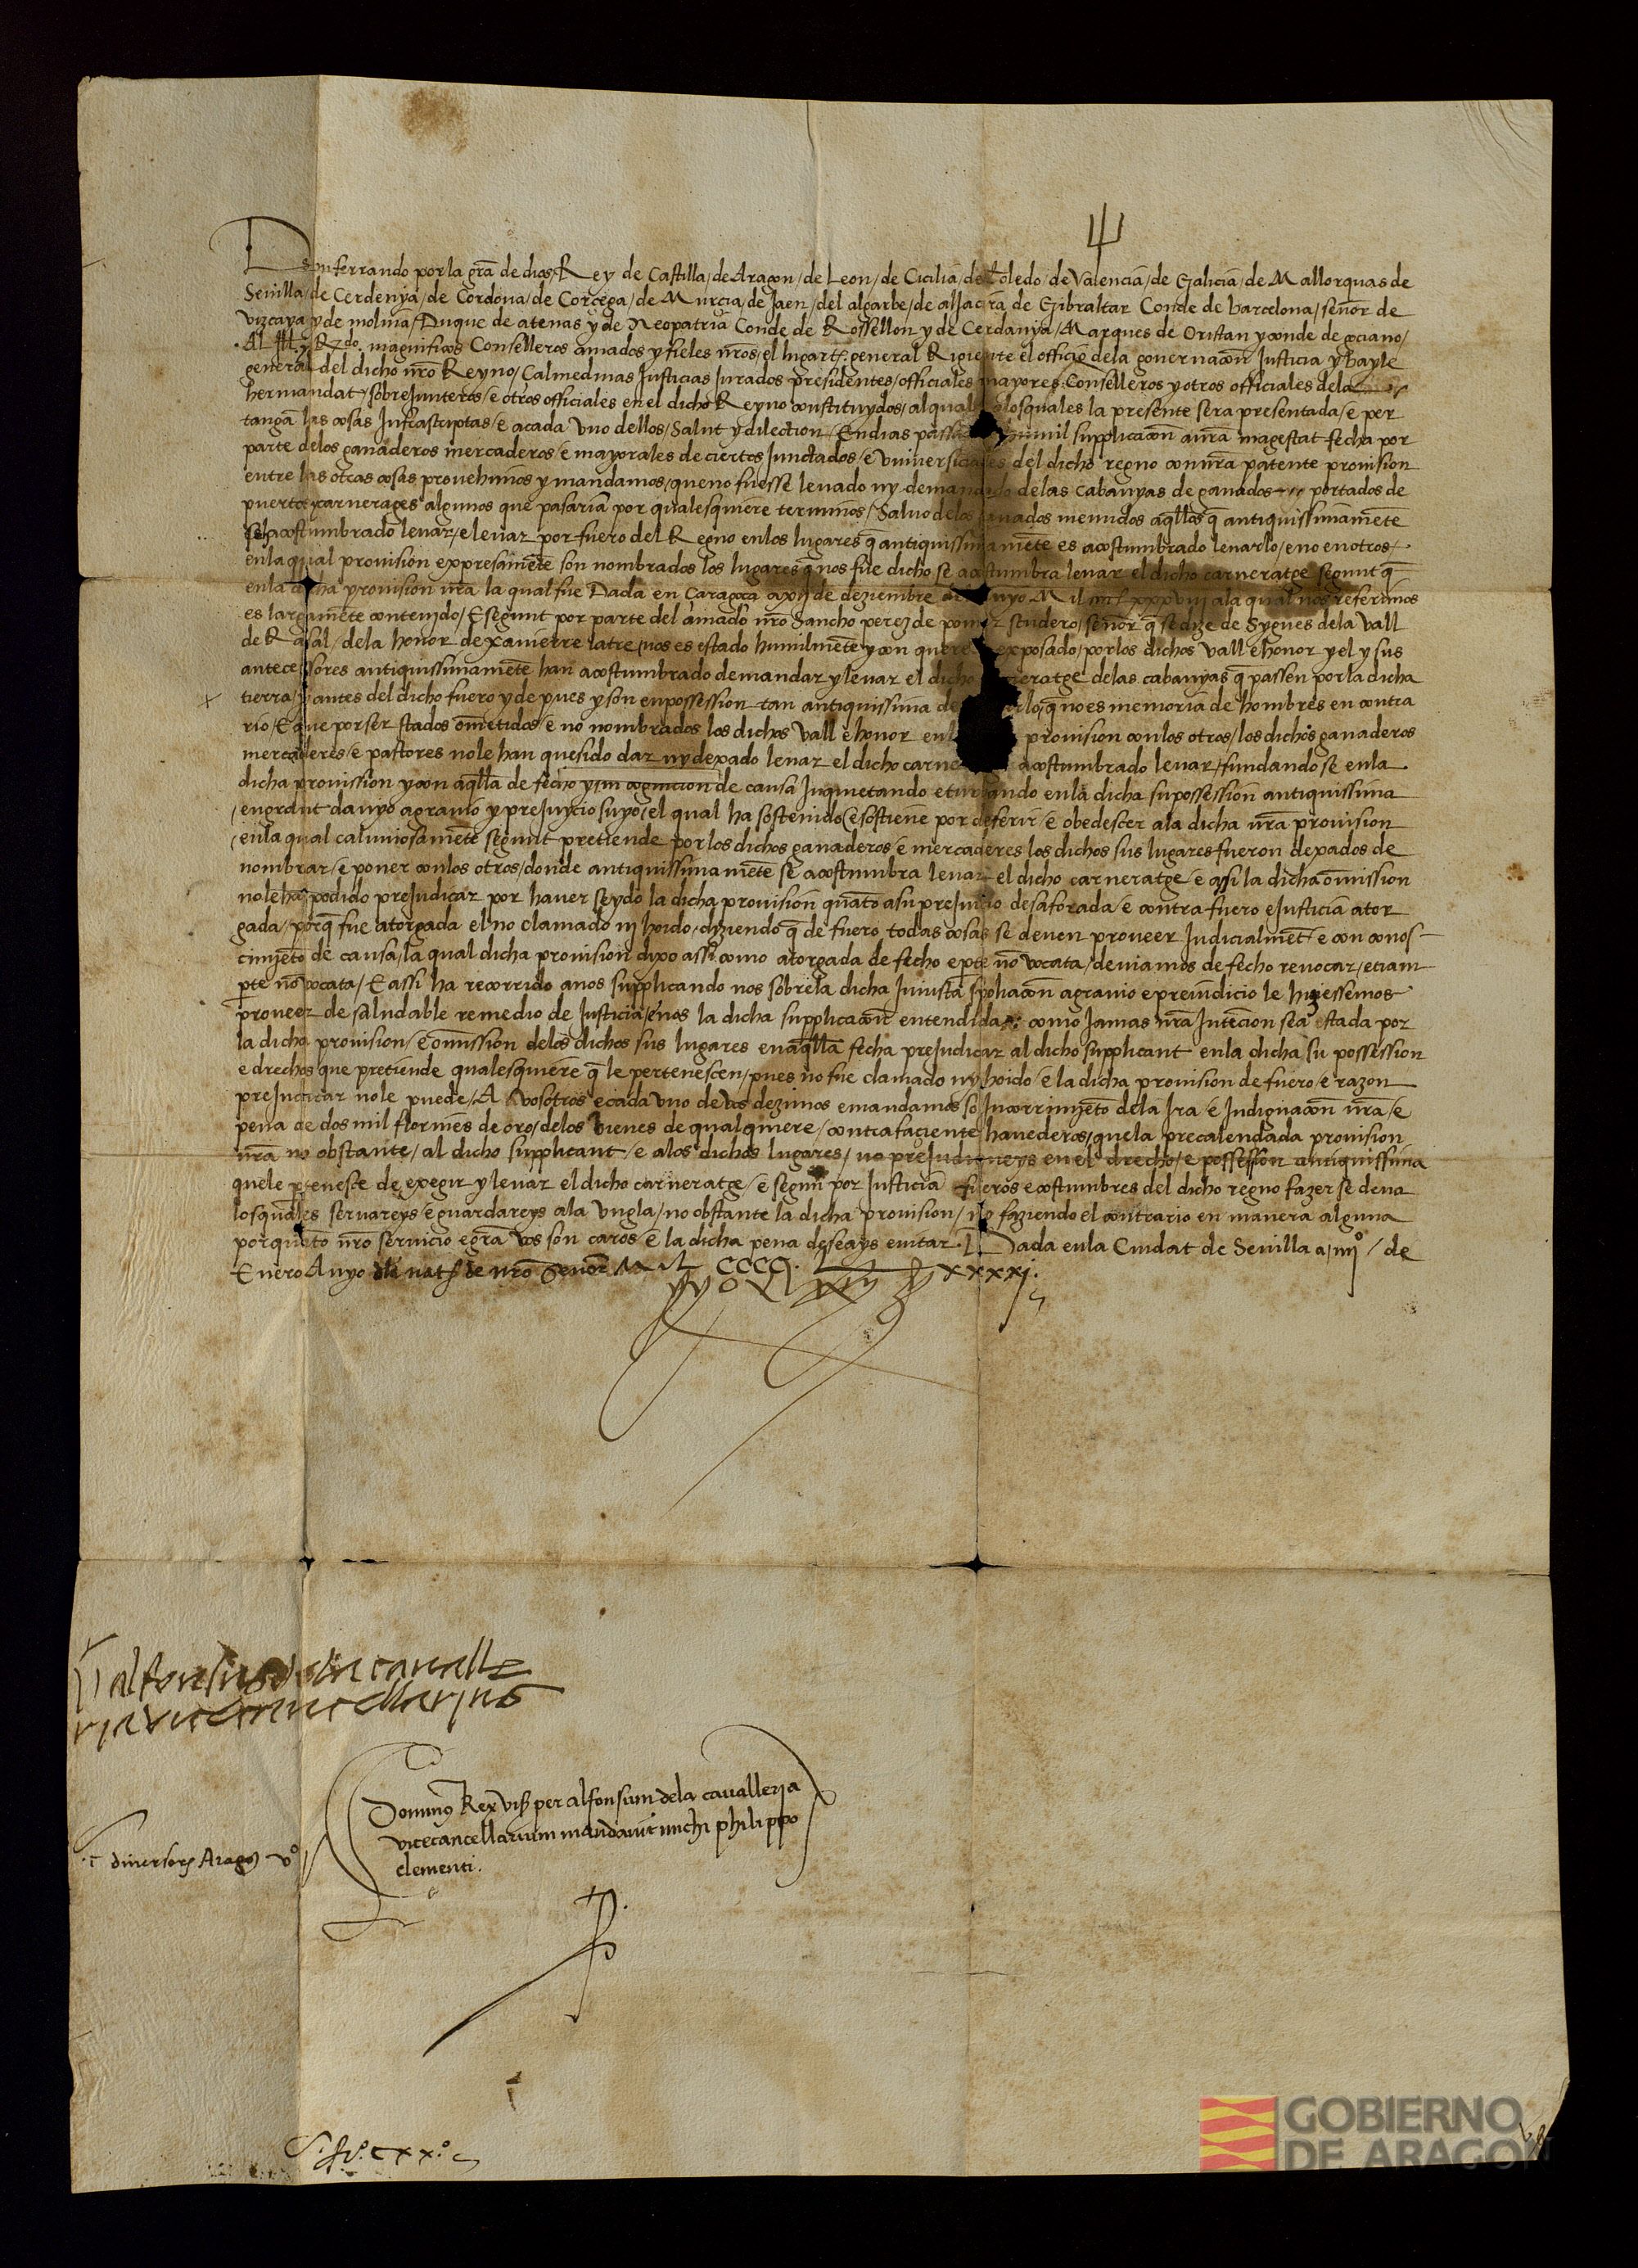 Don ferrando por la gra de dios Rey de Castilla / de Aragon / de Leon / de Cicilia / de Toledo / de Valencia / de Galicia / de Mallorquas de
Seuilla / de Cerdenya / de Cordoua / de Corcega / de Murcia / de Jaen / del algarbe / de aljazira de Gibraltar Conde de barcelona / señor de
vizcaya y de molina / Duque de atenas y de Neopatria Conde de Rossellon y de Cerdanya / Marques de Oristan y conde de gociano /
Al y Rdo. magnificos Conselleros amados y fieles nros / el general Rigiente el officio dela gouernacon Justicia y bayle
general del dicho nro Reyno / Calmedinas Justicias Jurados presidentes / officiales mayores Conselleros y otros officiales dela
hermandat / sobrejunteros / e otros officiales en el dicho Reyno constituydos / al qual losquales la presente sera presentada / e per
tanga las cosas Infrascriptas / e acada vno dellos / Salut y dilection / En dias humil supplicacon a nra magestat fecha por
parte delos ganaderos mercaderos / e mayorales de ciertos Junctados / e vniuersidades del dicho regno con nra patente prouision
entre las otras cosas prouehimos y mandamos / que no fuesse leuado ny demandado delas cabanyas de ganados portados de
puertos carnerages algunos que pasaria por qualesquiere terminos / Saluo delos ganados menudos aqllos q antiquissimamete
acostumbrado leuar / e leuar por fuero del Regno en los lugares q antiquissimamete es acostumbrado leuarlo / e no en otros
enla qual prouision expresamete son nombrados los lugares q nos fue dicho se acostumbra leuar el dicho carneratge segunt q
enla dicha prouision nra la qual fue Dada en Caragoca a de deziembre anyo Mil xxxviij ala qual nos referimos
es largamete contenido / E segunt por parte del amado nro Sancho perez de pomar scudero / señor q se dize de Sygues dela vall
de Rasal / dela honor de xauierre latre / nos es estado humilmete y con exposado / por los dichos vall e honor y el y sus
antecessores antiquissimamete han acostumbrado demandar y leuar el dicho carneratge delas cabanyas q passen por la dicha
tierra / y antes del dicho fuero y de pues y son en possession tan antiquissima de q no es memoria de hombres en contra
rio / E que por ser stados ometidos / e no nombrados los dichos vall e honor enla prouision con los otros / los dichos ganaderos
mercaderes / e pastores no le han quesido dar ny dexado leuar el dicho acostumbrado leuar / fundando se enla
dicha prouission y con aqlla de fecho y sin cognicion de causa Inquietando e turbando enla dicha su possession antiquissima
/ en grant danyo agrauio y prejuycio suyo / el qual ha sostenido e sostiene por deferir / e obedescer ala dicha nra prouision
/ enla qual calumniosamete segunt pretiende por los dichos ganaderos e mercaderes los dichos sus lugares fueron dexados de
nombrar / e poner con los otros / donde antiquissimamete se acostumbra leuar el dicho carneratge / e assi la dicha omission
no le ha podido prejudicar por hauer seydo la dicha prouision quato a su prejuicio desaforada / e contra fuero e Justicia ator
gada / porq fue atorgada el no clamado ni hoido / dyziendo q de fuero todas cosas se deuen proueer Judicialmet e con conos
cimyeto de causa / la qual dicha prouision dixo assi como atorgada de fecho e pte no vocata / deuiamos de fecho reuocar / etiam
pte no vocata / E assi ha recorrido a nos supplicando nos sobre la dicha Iniusta spoliacon agrauio e preiudicio le hiziessemos
proueer de saludable remedio de Justicia / e nos la dicha supplicacon entendida / como Jamas nra Intecion sea estada por
la dicha prouision / e omission delos dichos sus lugares en aqlla fecha prejudicar al dicho supplicant enla dicha su possession
e drechos que pretiende qualesquiere q le pertenescen / pues no fue clamado ny hoido / e la dicha prouision de fuero / e razon
prejudicar no le puede / A vosotros e cada vno de vos dezimos e mandamos so Incorrimyeto dela Ira / e Indignacon nra / e
pena de dos mil florines de oro / delos bienes de qualquiere / contrafaziente hauederos / que la precalendada prouision
nra no obstante / al dicho supplicant / e alos dichos lugares / no prejudiqueys en el drecho / e possession antiquissima
que le ptenesce de exegir y leuar el dicho carneratge / e segun por Justicia fueros e costumbres del dicho regno fazer se deua
los quales seruareys e guardareys ala vngla / no obstante la dicha prouision / no faziendo el contrario en manera alguna
por quato nro seruicio e gra vos son caros / e la dicha pena deseays euitar. Dada enla Ciudat de Seuilla a iiijº / de
Enero Anyo de nro Senor Mil CCCC. L xxxxj.
yo el Rey
Vt alfonsus dela cavalle
ria vicecancellarius
Dominus Rex vis per alfonsum dela cavalleria
vicecancellarium mandauit michi philippo
clementi.
diversorz Aragon vº
P.
GOBIERNO
DE ARAGON